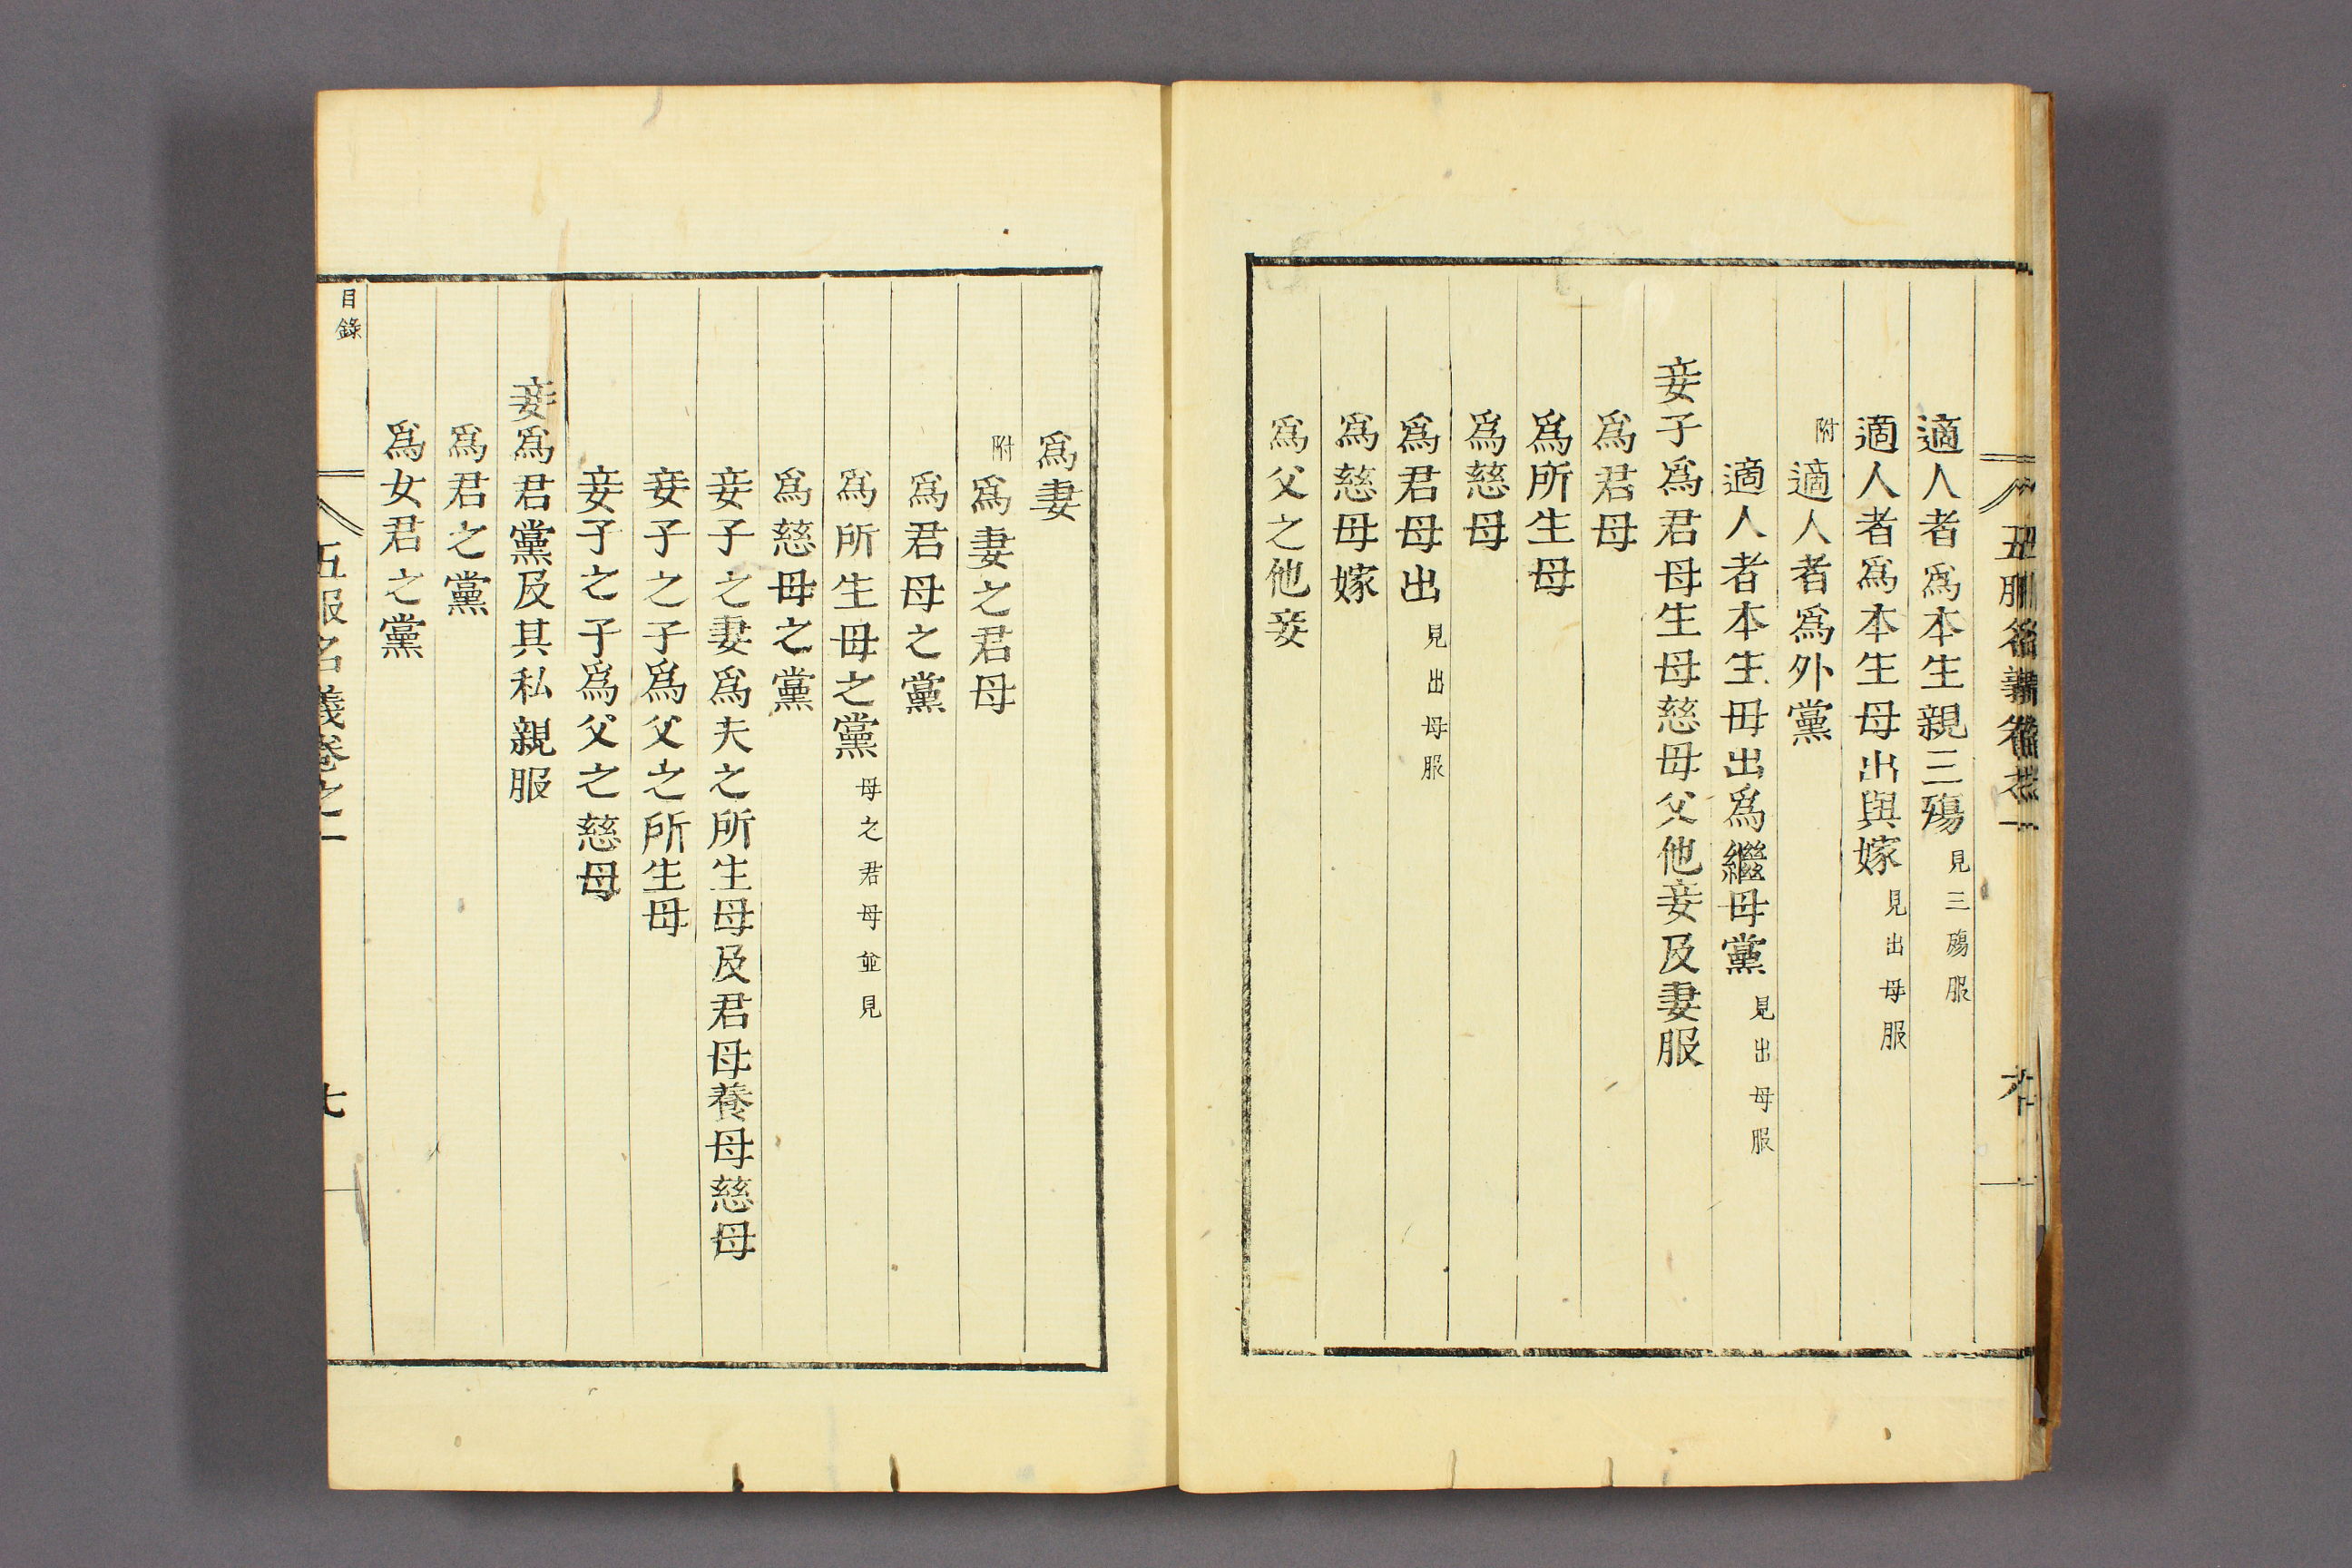 適人者為本生親三殤見三殤服
適人者為本生母出與嫁見出母服
附適人者為外黨
適人者本生母出為繼母黨見出母服
妾子為君母生母慈母父他妾及妻服
為君母
為所生母
為慈母
為君母出見出母服
為慈母嫁
為父之他妾
為妻
附為妻之君母
為君母之黨
為所生母之黨母之君母並見
為慈母之黨
妾子之妻為夫之所生母及君母養母慈母
妾子之子為父之所生母
妾子之子為父之慈母
妾為君黨及其私親服
為君之黨
為女君之黨
目錄
五服名義卷之一
七